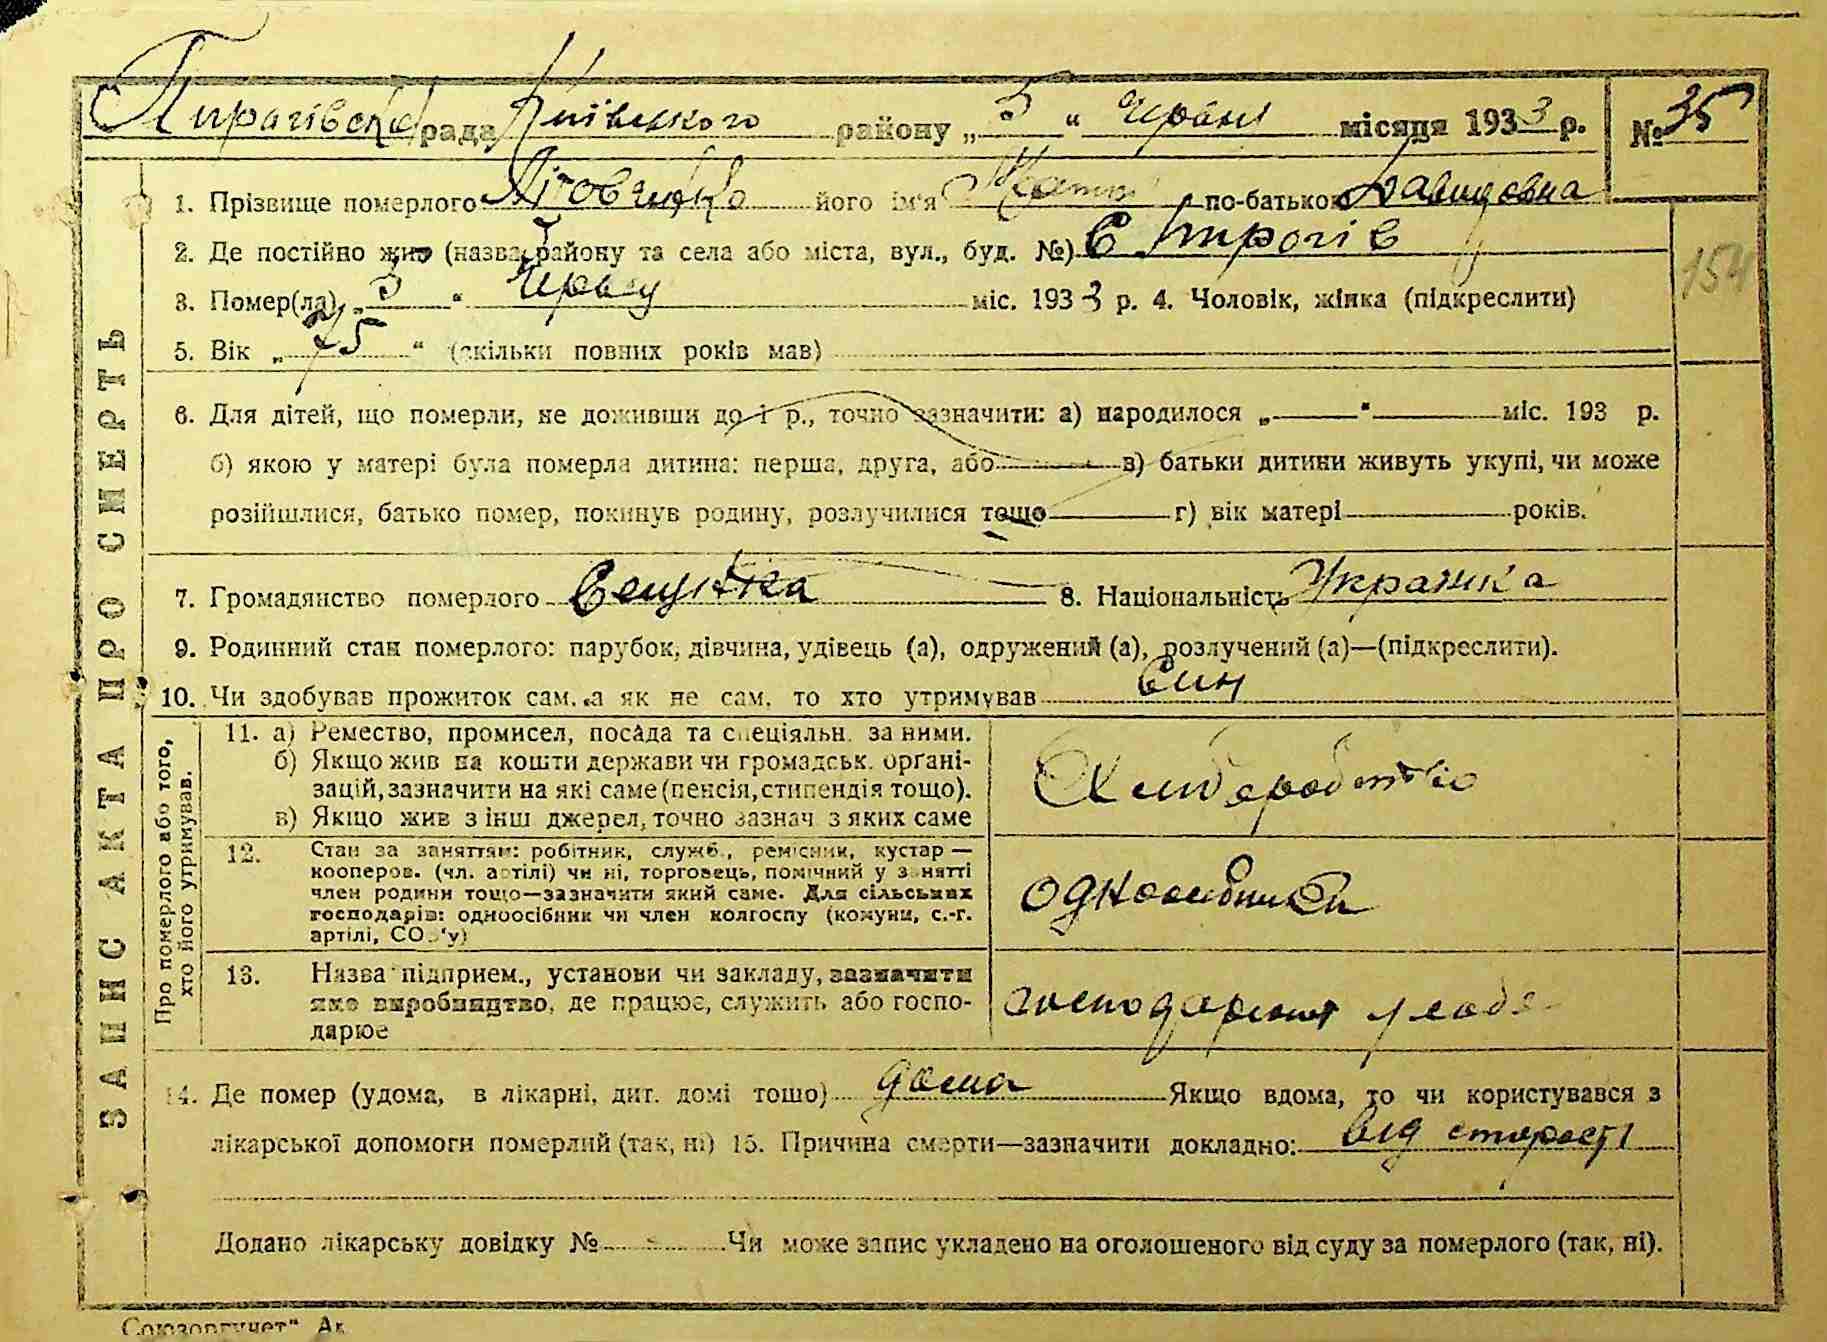 Пирогівська рада Київського району „5“ червня місяця 1933 р. № 35
1. Прізвище померлого його ім'я по-батькові Давидовна
2. Де постійно жив (назва району та села або міста, вул., буд. №) с Пирогів
154
3. Помер(ла) „3“ червня міс. 1933 р. 4. Чоловік, жінка (підкреслити)
5. Вік „75“ (скільки повних років мав)
6. Для дітей, що померли, не доживши до 1 р., точно зазначити: а) народилося „ “ міс. 193 р.
б) якою у матері була померла дитина: перша, друга, або в) батьки дитини живуть укупі, чи може
розійшлися, батько помер, покинув родину, розлучилися тощо г) вік матері років.
7. Громадянство померлого 8. Національність Українка
9. Родинний стан померлого: парубок, дівчина, удівець (а), одружений (а), розлучений (а)—(підкреслити).
10. Чи здобував прожиток сам, а як не сам, то хто утримував Син
ЗАПИС АКТА ПРО СМЕРТЬ
Про померлого або того,
хто його утримував.
11. а) Ремество, промисел, посада та спеціяльн. за ними.
б) Якщо жив на кошти держави чи громадськ. орґані-
зацій, зазначити на які саме (пенсія, стипендія тощо).
в) Якщо жив з інш джерел, точно зазнач з яких саме
Хлібороботво
12. Стан за заняттям: робітник, служб., ремісник, кустар —
кооперов. (чл. артілі) чи ні, торговець, помічний у занятті
член родини тощо—зазначити який саме. Для сільських
господарів: одноосібник чи член колгоспу (комуни, с.-г.
артілі, СОЗ'у)
одноосібник
13. Назва підприєм., установи чи закладу, зазначити
яке виробництво, де працює, служить або госпо-
дарює
господарює у себе
14. Де помер (удома, в лікарні, дит. домі тощо) дома Якщо вдома, то чи користувався з
лікарської допомоги померлий (так, ні) 15. Причина смерти—зазначити докладно: від старості
Додано лікарську довідку № Чи може запис укладено на оголошеного від суду за померлого (так, ні).
„Союзоргучет“ Ак